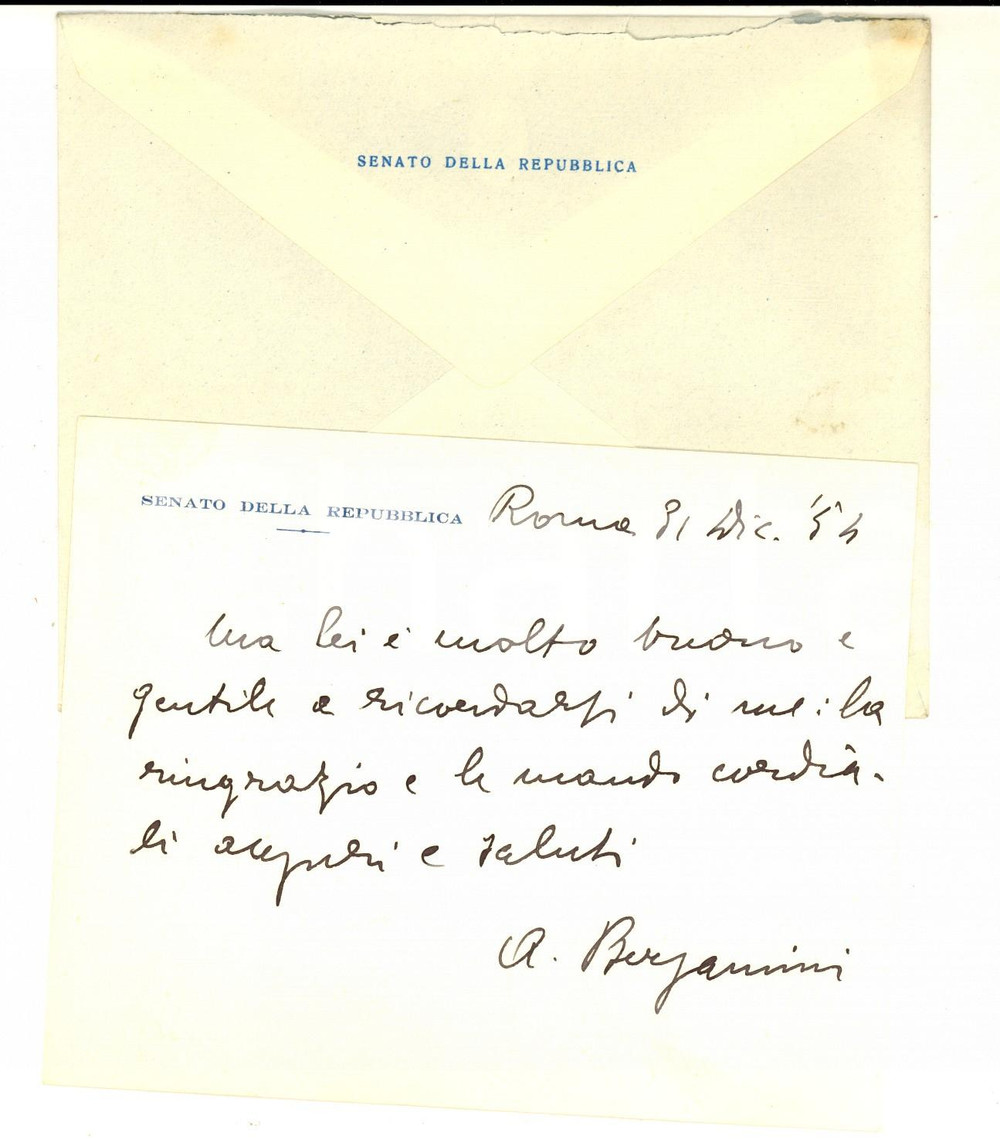 SENATO DELLA REPUBBLICA
SENATO DELLA REPUBBLICA Roma 31 Dic. '54
Ma lei è molto buono e
gentile a ricordarsi di me: la
ringrazio e le mando cordia-
li auguri e saluti
A. Bergamini